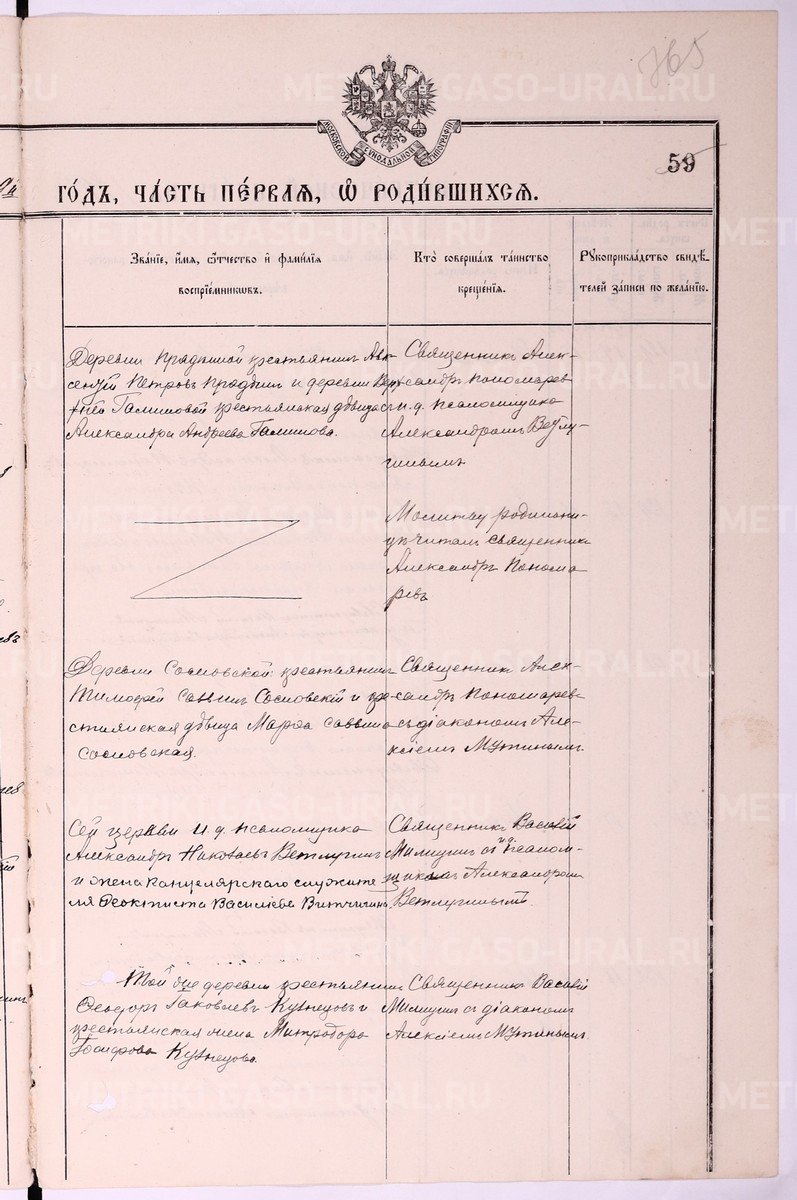 765
МОСКОВСКОЙ СУНОДАЛЬНОЙ ТИПОГРАФІИ
59
го́дъ, ча́сть пе́рваѧ, ѡ҆ роди́вшихсѧ.
Зва́нїе, и҆́мѧ, ѻ҆́тчество и҆ фами́лїѧ
воспрїе́мникѡвъ.
Кто̀ соверша́лъ та́инство
креще́нїѧ.
Рꙋкоприкла́дство свидѣ́-
телей за́писи по жела́нїю.
Деревни крестьянинъ Авк-
сентій Петровъ и деревни Верх-
ней Галишовой крестьянская дѣвица
Александра Андреева Галишова.
Священникъ Алек-
сандръ Пономаревъ
с и. д. псаломщика
Александромъ Ветлу-
гинымъ
Молитву родильни-
цѣ читалъ священникъ
Александръ Понома
ревъ
Деревни Сосновской крестьянинъ
Тимофей Саввинъ Сосновскій и кре-
стьянская дѣвица Марѳа Саввина
Сосновская.
Священникъ Алек-
сандръ Пономаревъ
съ діакономъ Але-
ксіемъ Мутинымъ
Сей церкви и. д. псаломщика
Александръ Николаевъ Ветлугинъ
и жена канцелярскаго служите
ля Ѳеоктиста Василіева
Священникъ Василій
Милицинъ съ и д псалом-
щика Александромъ
Ветлугинымъ.
Той же деревни крестьянинъ
Ѳеодоръ Іаковлевъ Кузнецовъ и
крестьянская жена Митродора
Іосифова Кузнецова.
Священникъ Василій
Милицинъ съ діакономъ
Алексіемъ Мутинымъ.
METRIKI.GASO-URAL.RU